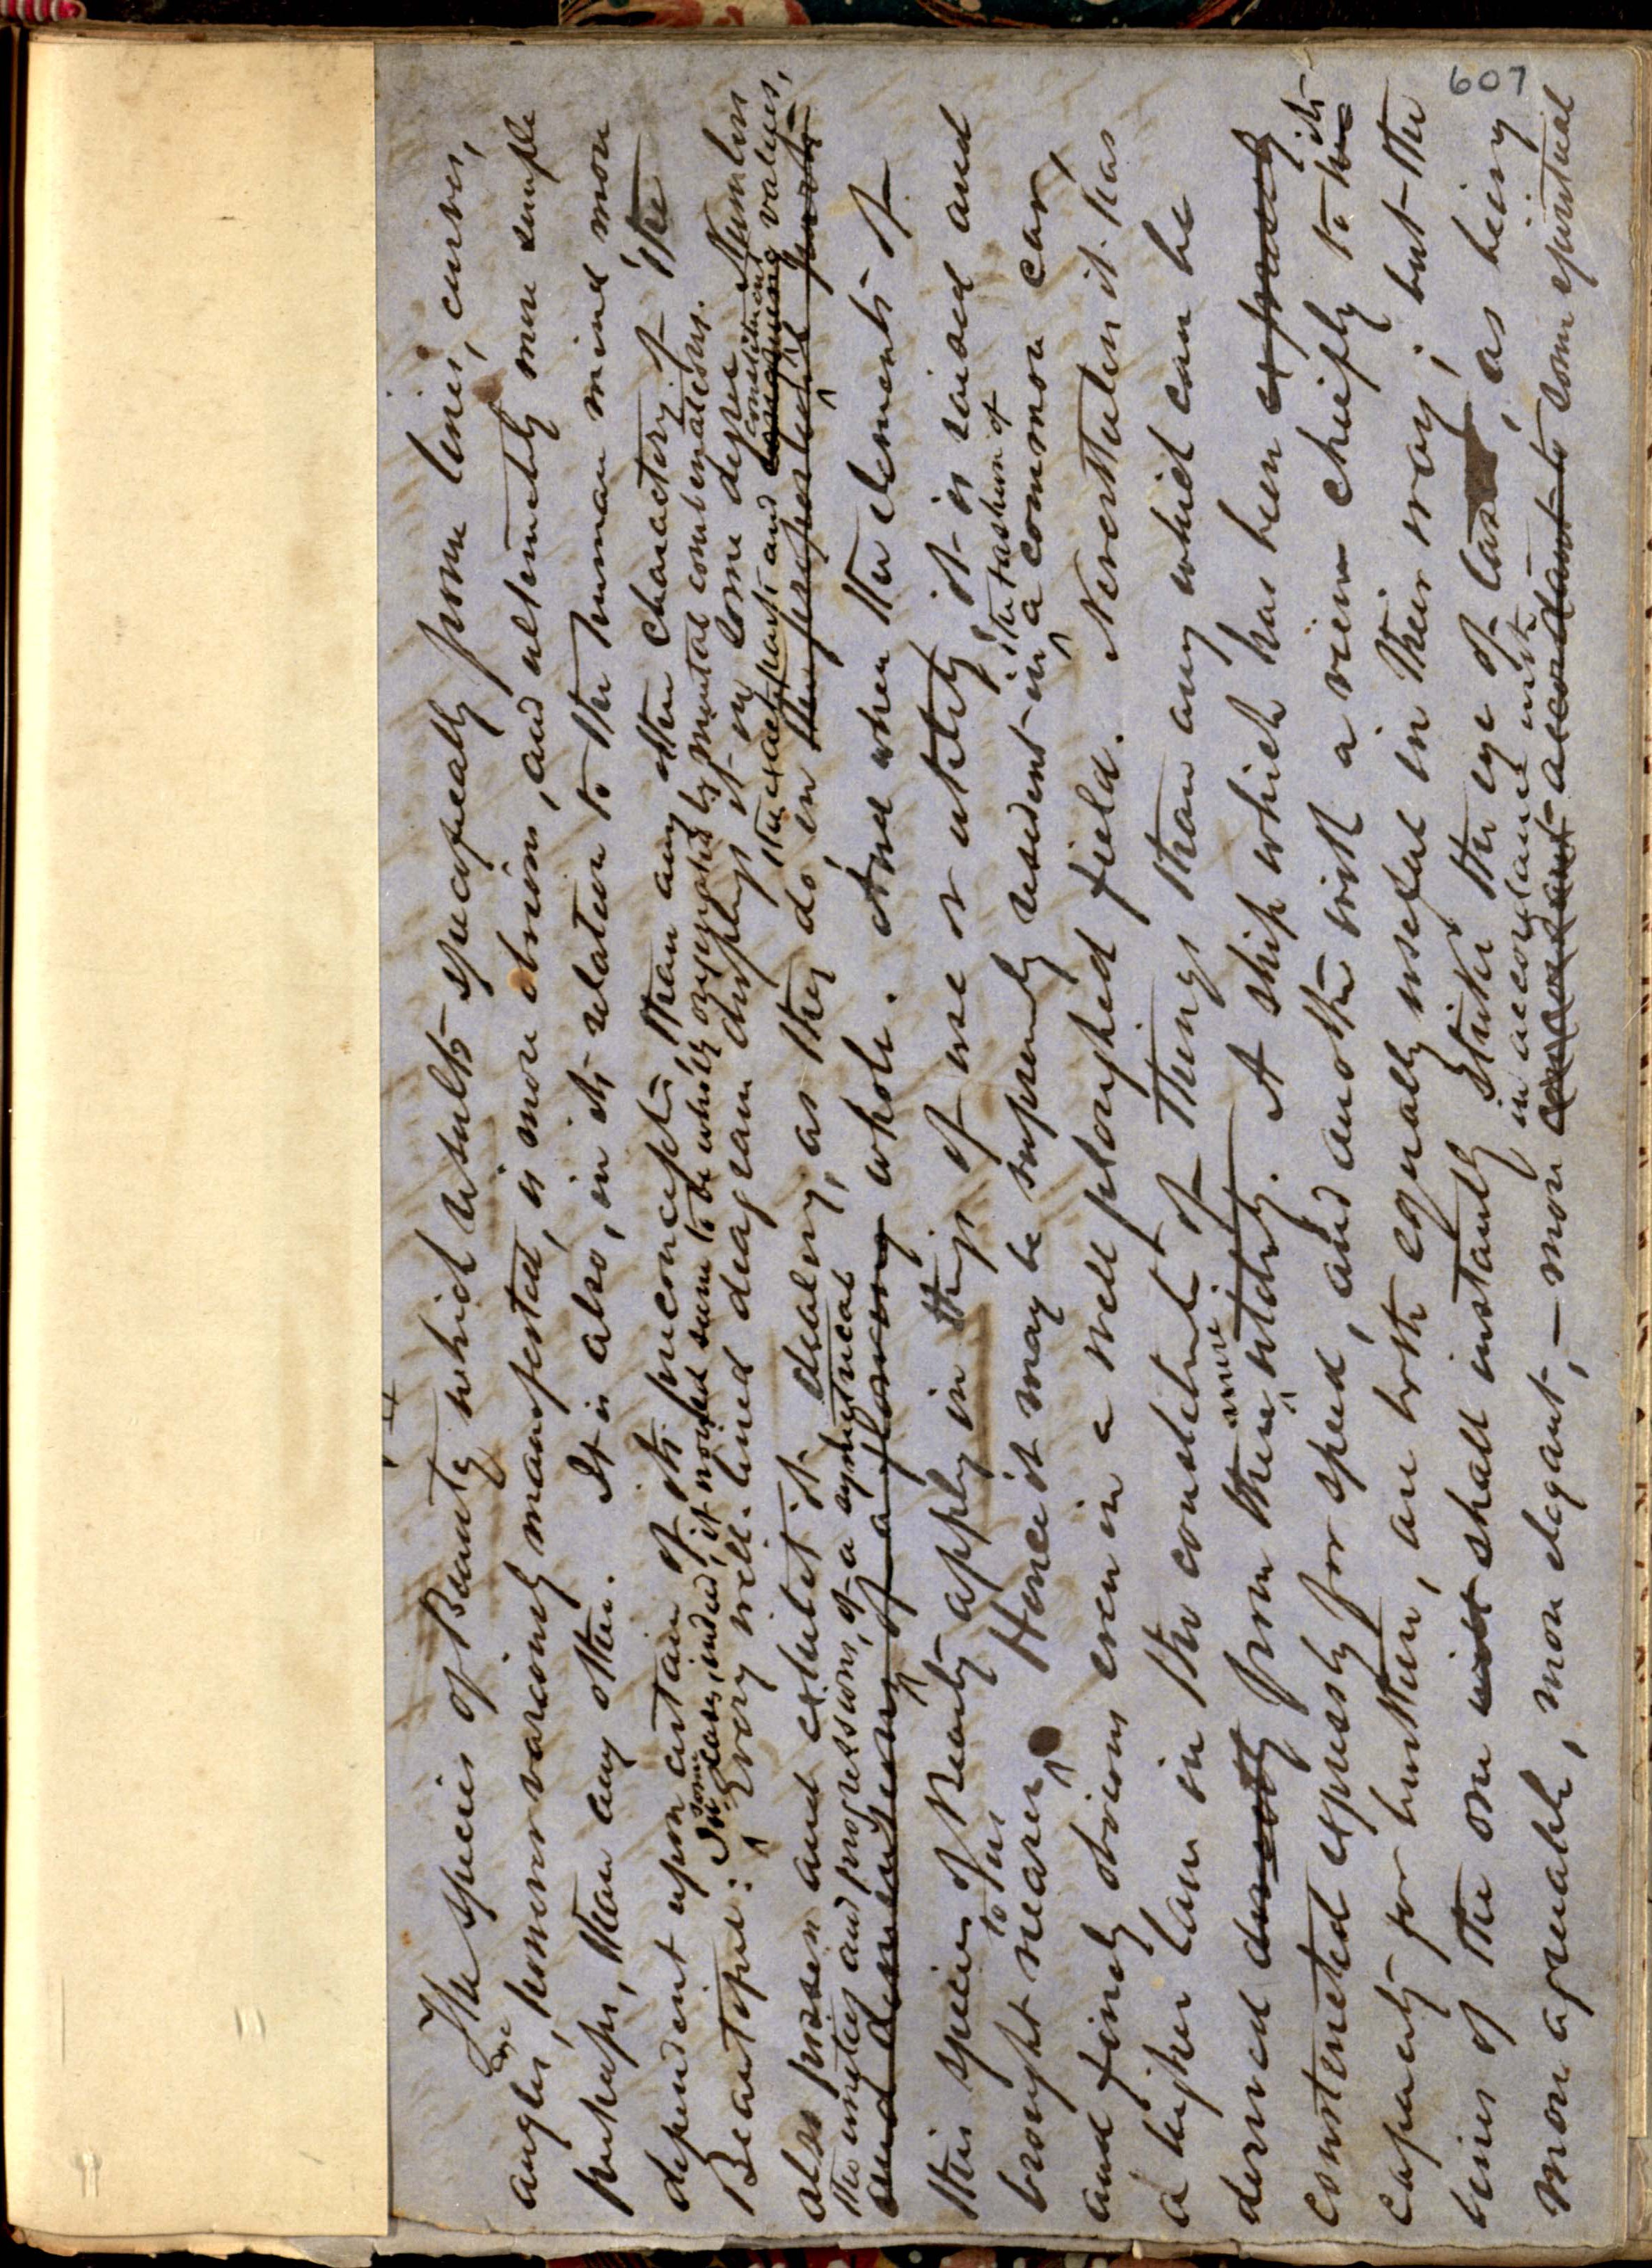 607
The species of Beauty which results specifically from lines, curves,
angles, however variously manifested, is more obvious, and ultimately more simple
perhaps, than any other. It is also, in its relation to the human mind more
dependent upon certain of its preconcepts than any other charactery of the
Beautiful: In some cases, indeed, it would seem to be wholly originated by mental combinations.
Every well-lined diagram displays it in some degree. Numbers
also possess and exhibit it clearly, as they do in the exact parts and consequence constituent values,
the unities and progressions, of a symmetrical themselves the parts
and of a flowing whole. And when the elements of
this species of Beauty apply in things of use or utility it is raised and
brought nearer to us. Hence it may be supremely resident in the fashion of a common car,
and finely obvious even in a well ploughed field. Nevertheless it has
a higher law in the constituents of things than any which can be
derived directly from their mere utility. A ship which has been expressly
constructed expressly for speed, and another with a view chiefly to her its
capacity for burthen, are both equally useful in their way; but the
lines of the one will shall instantly strike the eye of taste, as being
more agreeable, more elegant, — more in accordance with accordant to some spiritual